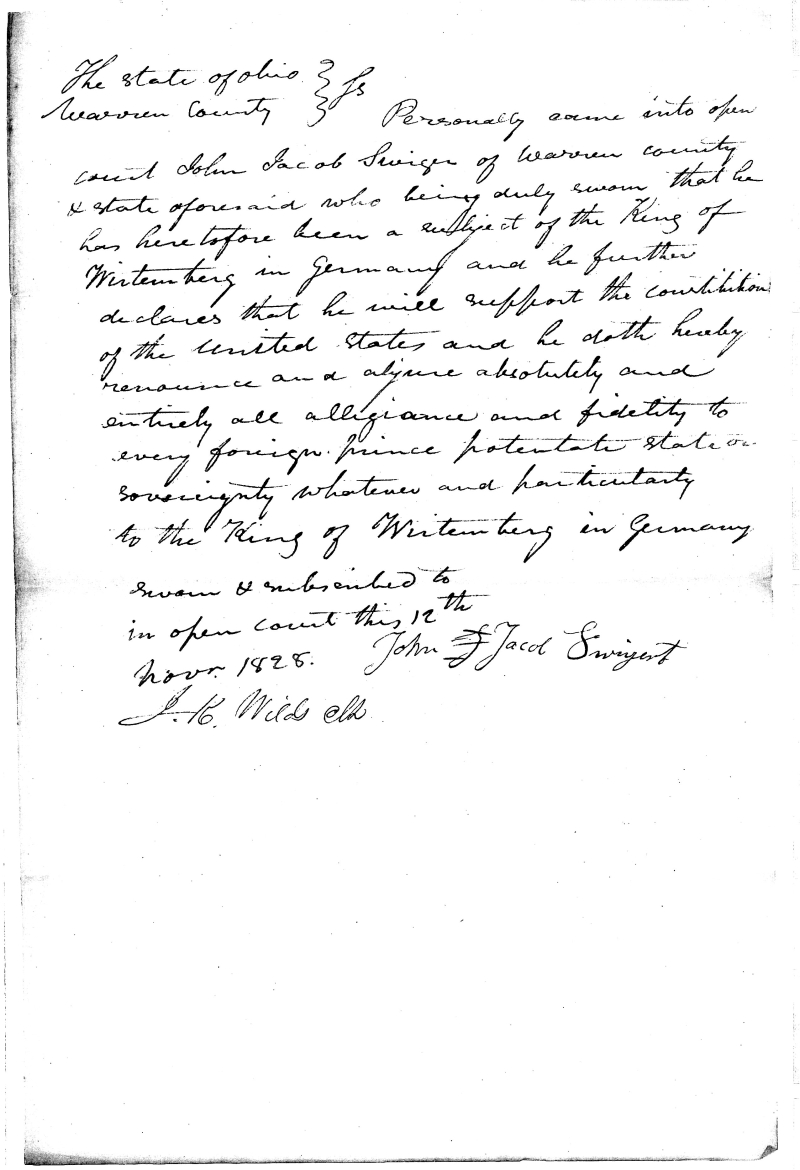 The State of Ohio } Ss
Warren County } Personally came into open
court John Jacob Swiger of Warren county
& state aforesaid who being duly sworn that he
has heretofore been a subject of the King of
Wirtemberg in Germany and he further
declares that he will support the constitution
of the United States and he doth hereby
renounce and abjure absolutely and
entirely all allegiance and fidelity to
every foreign prince potentate state or
sovereignty whatever and particularly
to the King of Wirtemberg in Germany
sworn & subscribed to
in open court this 12th
Novr. 1828. John Jacob Swigert
J. K. Wilds clk